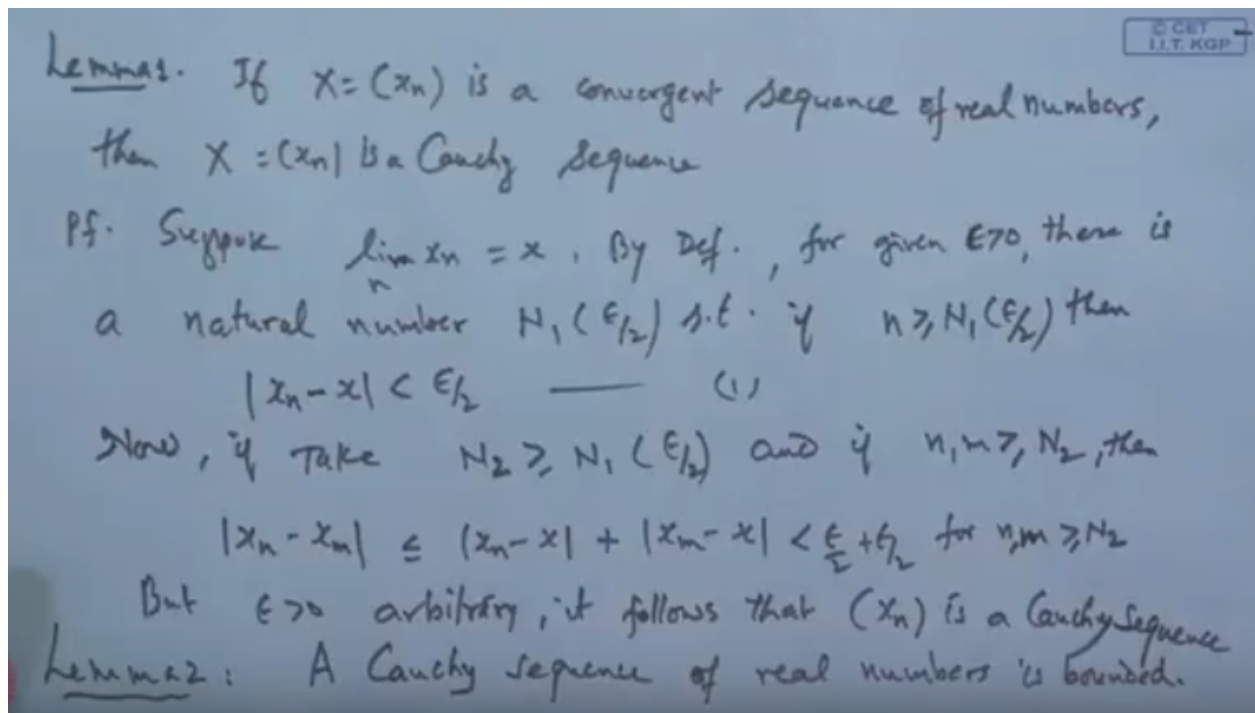 © CET
I.I.T. KGP
Lemma1. If X = (xn) is a convergent sequence of real numbers,
then X = (xn) is a Cauchy sequence
Pf. Suppose lim xn = x. By Def., for given ε>0, there is
n
a natural number N1(ε/2) s.t. if n ≥ N1(ε/2) then
|xn - x| < ε/2 —— (1)
Now, if Take N2 ≥ N1(ε/2) and if n,m ≥ N2, then
|xn - xm| ≤ |xn - x| + |xm - x| < ε/2 + ε/2 for n,m ≥ N2
But ε>0 arbitrary, it follows that (xn) is a Cauchy Sequence
Lemma2: A Cauchy sequence of real numbers is bounded.